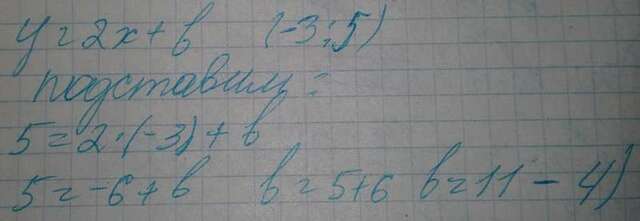 y = 2x + b (-3; 5)
подставим:
5 = 2·(-3) + b
5 = -6 + b b = 5+6 b = 11 - 4)